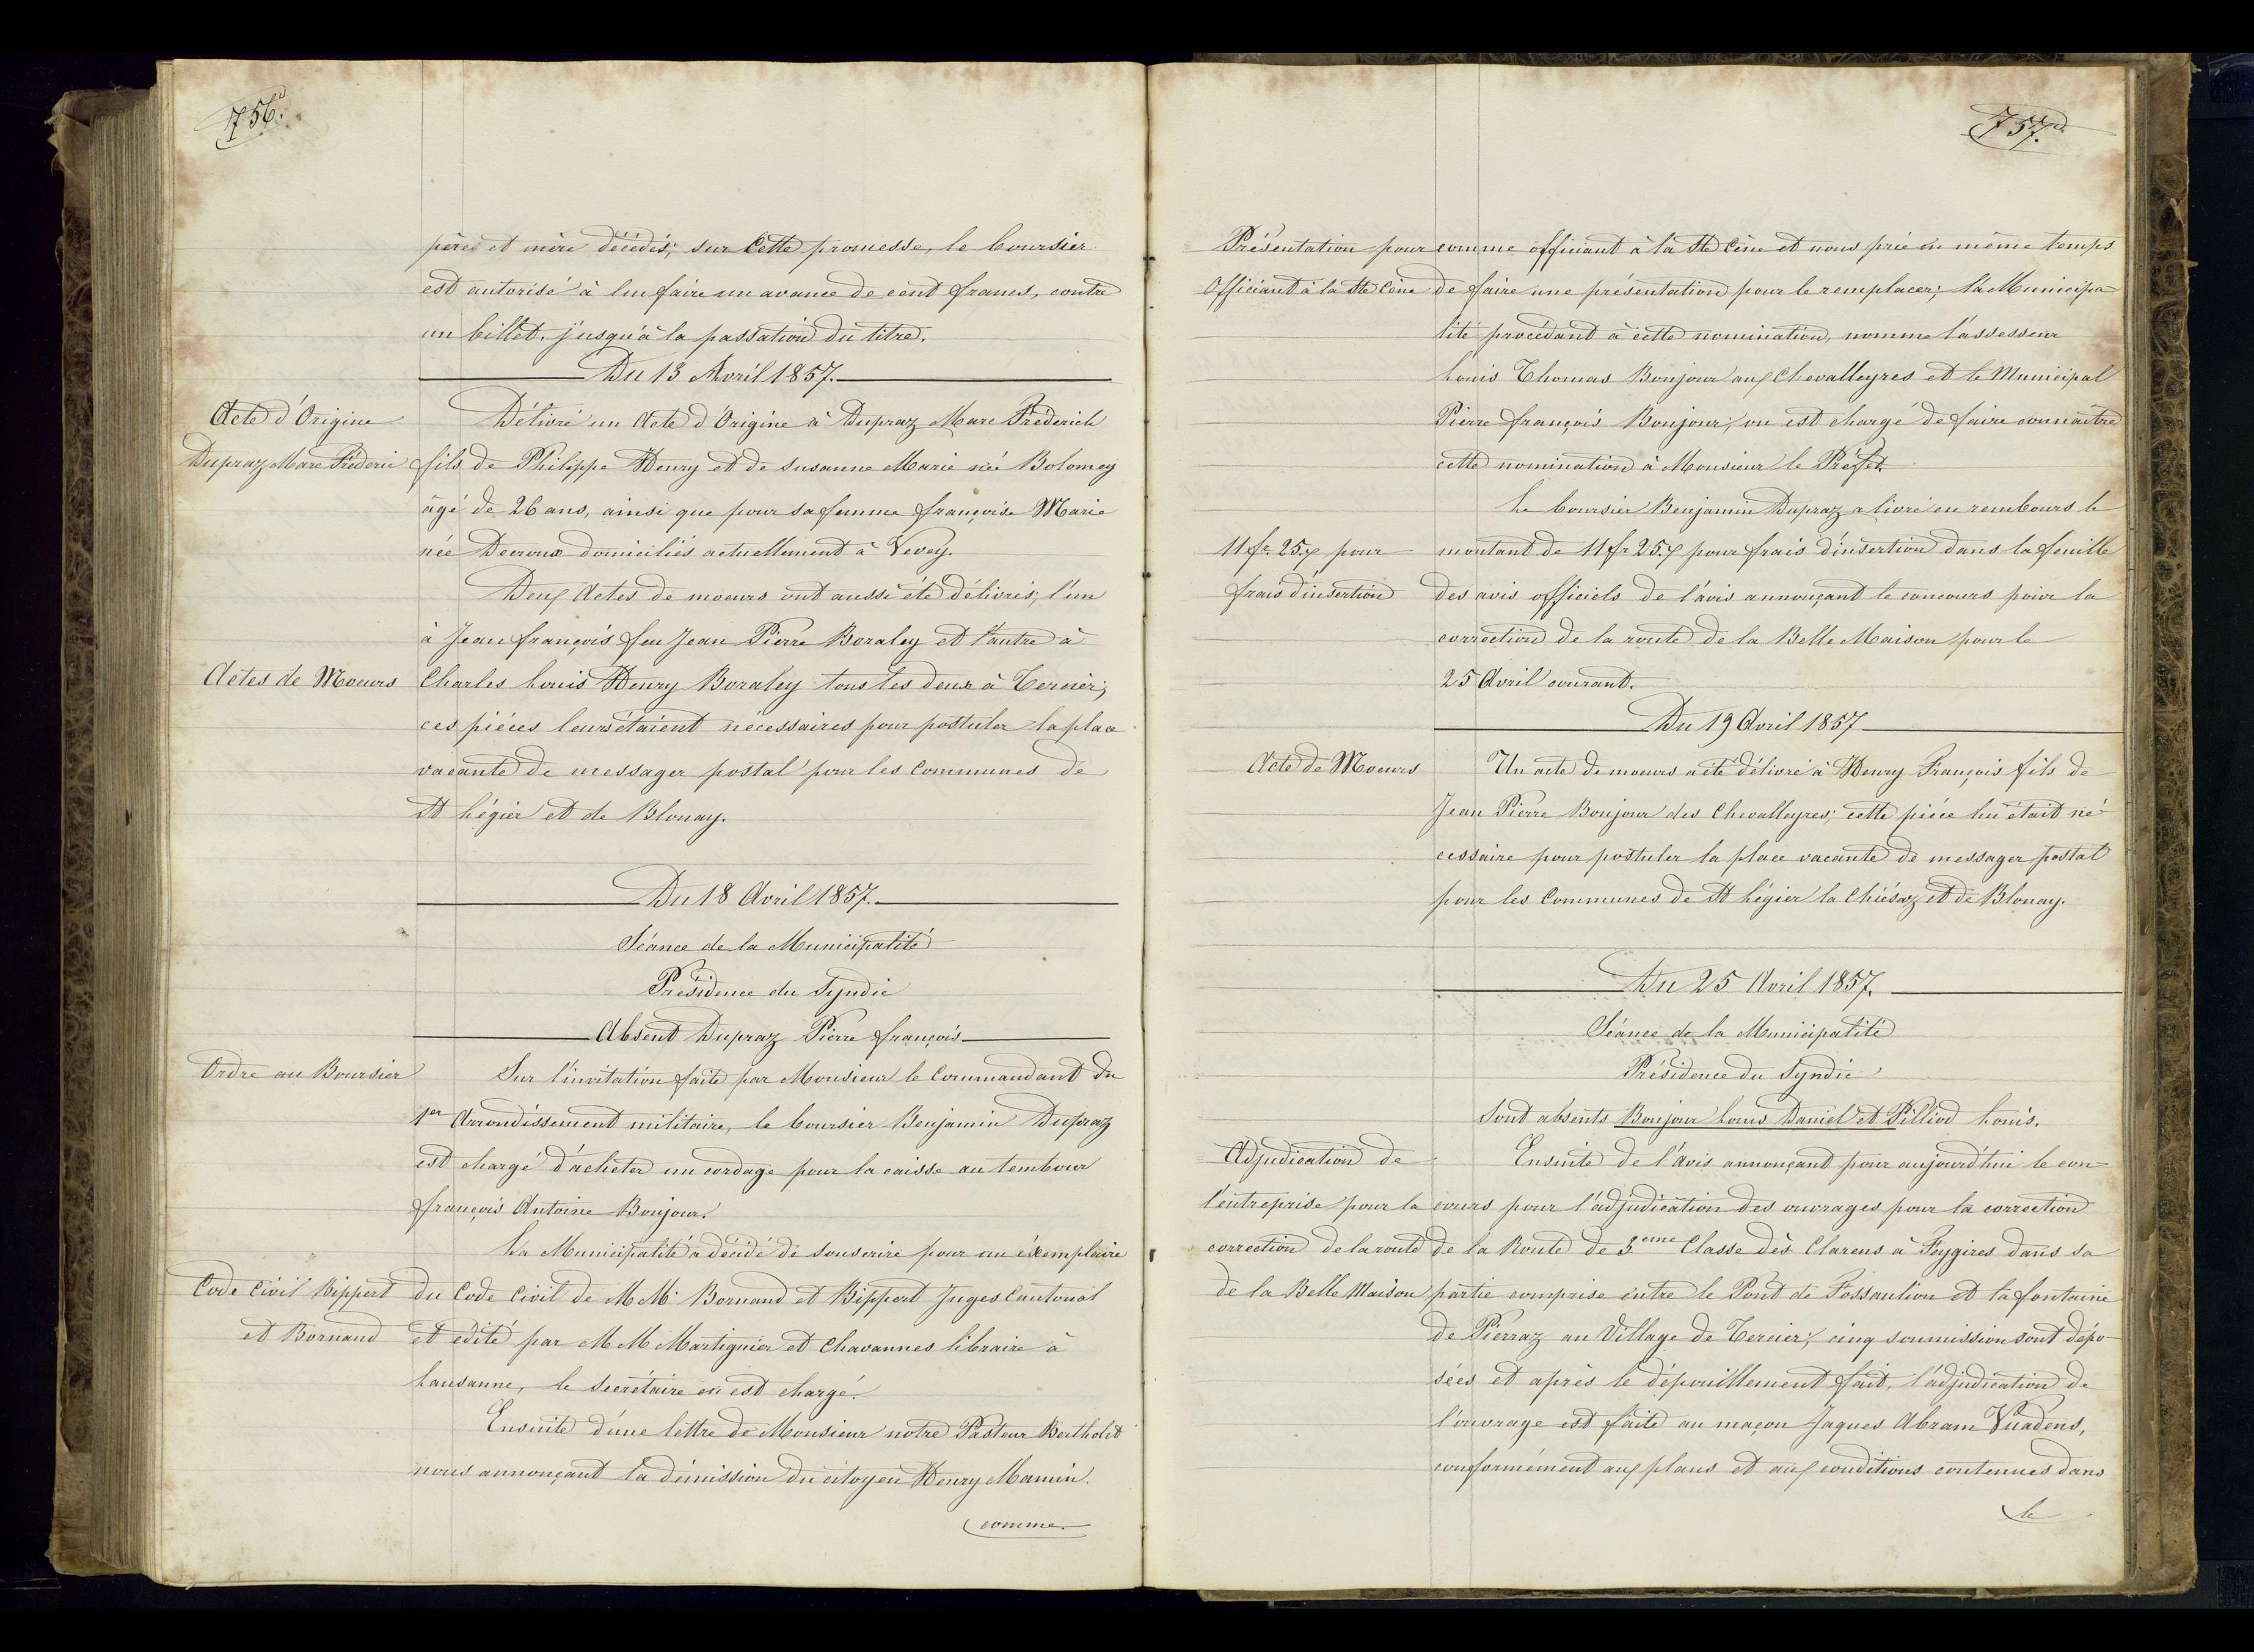 756.
pères et mère décédés; sur Cette promesse, le boursier
est autorisé à lui faire un avance de cent francs, contre
un billet, jusqu'à la passation du titre.
Du 13 Avril 1857.
Acte d'Origine
Dupraz Marc Fréderic
Délivré un Acte d'Origine à Dupraz Marc Fréderich
fils de Philippe Henry et de Susanne Marie née Bolomey
âgé de 26 ans, ainsi que pour sa femme françoise Marie
née Decroux domiciliés actuellement à Vevey.
Deux Actes de moeurs ont aussi été délivrés, l'un
à Jean françois feu Jean Pierre Boraley et l'autre à
Actes de Moeurs
Charles Louis Henry Boraley tous les deux à Tercier;
ces piéces leurs étaient nécessaires pour postuler la place
vacante de messager postal pour les Communes de
St Légier et de Blonay.
Du 18 Avril 1857.
Séance de la Municipalité
Présidence du Syndic
Absent Dupraz Pierre françois
Ordre au Boursier
Sur l'invitation faite par Monsieur le Commandant du
1er Arrondissement militaire, le boursier Benjamin Dupraz
est chargé d'acheter un cordage pour la caisse au tembour
françois Antoine Bonjour.
La Municipalité a décidé de souscrire pour un éxemplaire
Code Civil Bippert
et Bornand
du Code Civil de M M. Bornand et Bippert Juges Cantonal
et edité par M M Martignier et Chavannes libraire à
Lausanne, le Secrétaire en est chargé.
Ensuite d'une lettre de Monsieur notre Pasteur Bertholet
nous annonçant la démission du citoyen Henry Mamin
comme
757.
Présentation pour
Officiant à la Ste Cène
comme officiant à la Ste Cène et nous prie en même temps
de faire une présentation pour le remplacer; la Municipa
lité procédant à cette nomination, nomme l'assesseur
Louis Thomas Bonjour aux Chevalleyres et le Municipal
Pierre françois Bonjour, on est chargé de faire connaître
cette nomination à Monsieur le Préfet.
Le boursier Benjamin Dupraz a livré en rembours le
11 fr. 25. pour
frais d'insertion
montant de 11 fr 25. pour frais d'insertion dans la feuille
des avis officiels de l'avis annonçant le concours pour la
correction de la route de la Belle Maison pour le
25 Avril courant.
Du 19 Avril 1857
Acte de Moeurs
Un acte de moeurs a été délivré à Henry François fils de
Jean Pierre Bonjour des Chevalleyres; cette piéce lui était né
cessaire pour postuler la place vacante de messager postal
pour les Communes de St Légier la Chiésaz et de Blonay.
Du 25 Avril 1857.
Séance de la Municipalité
Présidence du Syndic
Sont absents Bonjour Louis Daniel et Pilliod Louis.
Adjudication de
l'entreprise pour la
correction de la route
de la Belle Maison
Ensuite de l'Avis annonçant pour aujourd'hui le con=
cours pour l'adjudication des ouvrages pour la correction
de la Route de 3.eme Classe dès Clarens à Feygires dans sa
partie comprise entre le Pont de Fossaulion et la fontaine
de Pierraz au Village de Tercier; cinq soumission sont dépo-
sées et après le dépouillement fait, l'adjudication de
l'ouvrage est faite au maçon Jaques Abram Vuadens,
conformément aux plans et aux conditions contenues dans
le